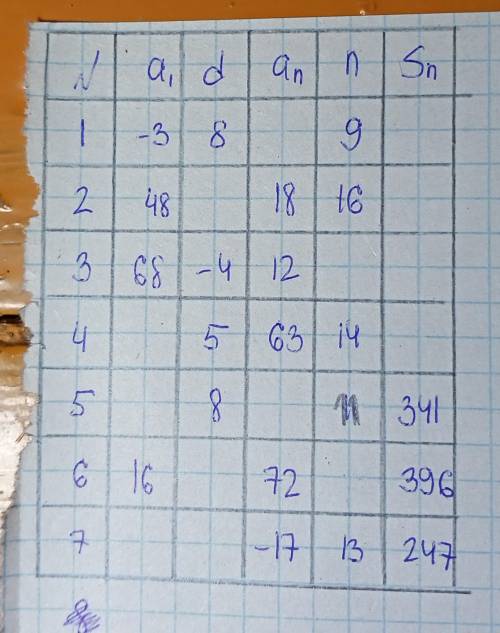 N a₁ d aₙ n Sₙ
1 -3 8 9
2 48 18 16
3 68 -4 12
4 5 63 14
5 8 11 341
6 16 72 396
7 -17 13 247